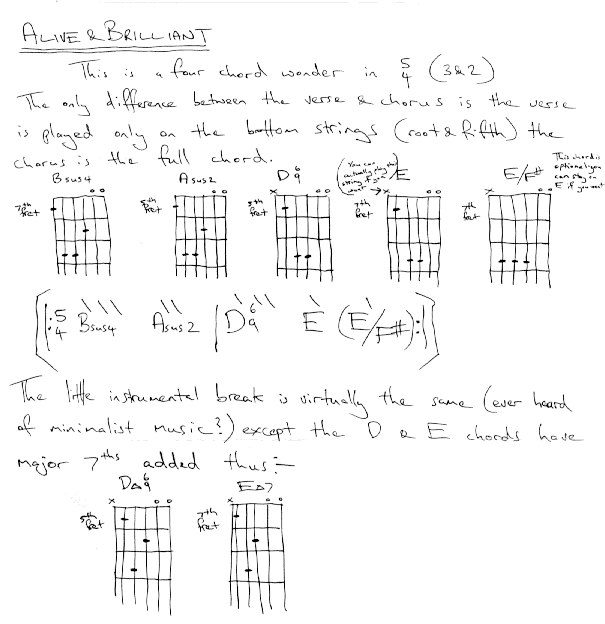 ALIVE & BRILLIANT
This is a four chord wonder in 5/4 (3&2)
The only difference between the verse & chorus is the verse
is played only on the bottom strings (root & fifth) the
chorus is the full chord.
Bsus4 Asus2 D6/9 E E/F#
(You can actually play this string if you want)
This chord is optional you can stay on E if you want
7th fret 5th fret 5th fret 7th fret 7th fret
x x x
[|: 5/4 Bsus4 \\\\ Asus2 \\ | D6/9 \\\ E \ (E/F#) \ :|]
The little instrumental break is virtually the same (ever heard
of minimalist music?) except the D & E chords have
major 7ths added thus:-
D△6/9 E△7
x x
5th fret 7th fret